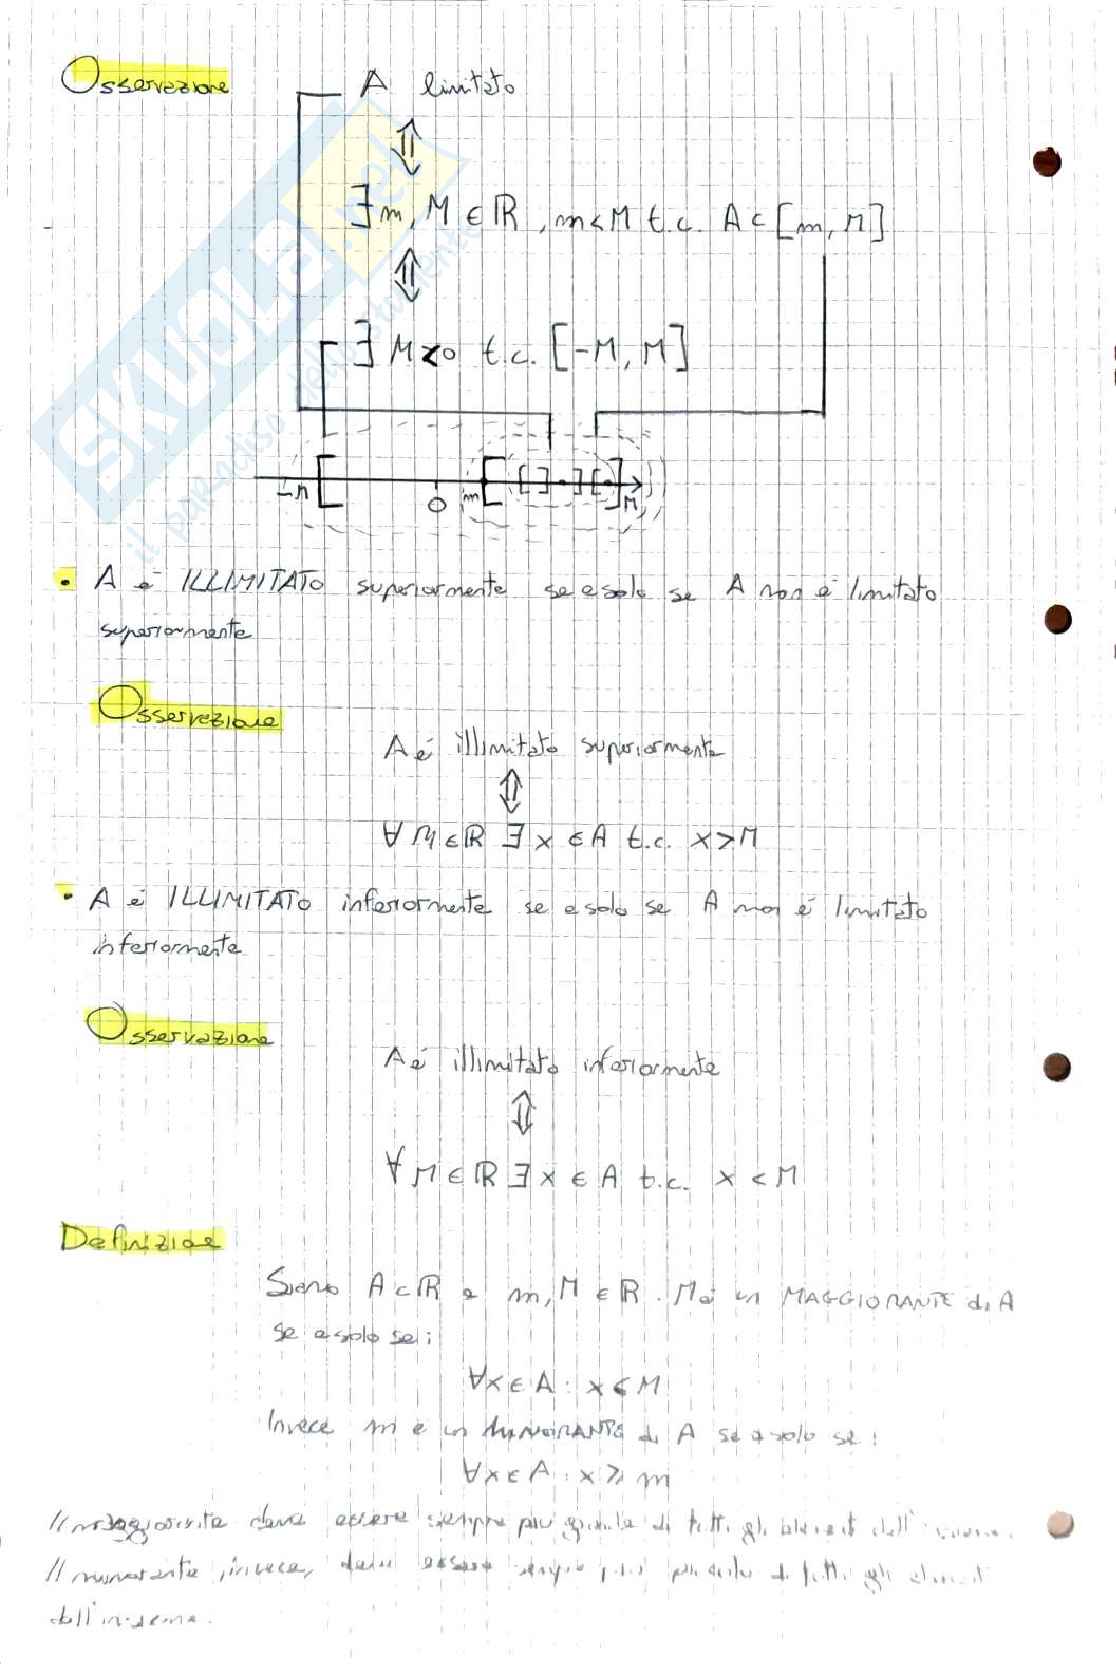 Osservazione
A limitato
⇕
∃ m, M ∈ ℝ, m < M t.c. A ⊂ [m, M]
⇕
∃ M > 0 t.c. [-M, M]
-M 0 m M
• A è ILLIMITATO superiormente se e solo se A non è limitato
superiormente
Osservazione
A è illimitato superiormente
⇕
∀ M ∈ ℝ ∃ x ∈ A t.c. x > M
• A è ILLIMITATO inferiormente se e solo se A non è limitato
inferiormente
Osservazione
A è illimitato inferiormente
⇕
∀ M ∈ ℝ ∃ x ∈ A t.c. x < M
Definizione
Siano A ⊂ ℝ e m, M ∈ ℝ. M è un MAGGIORANTE di A
se e solo se:
∀x ∈ A : x ⩽ M
Invece m è un MINORANTE di A se e solo se:
∀x ∈ A : x ⩾ m
Il maggiorante deve essere sempre più grande di tutti gli elementi dell'insieme.
Il minorante, invece, deve essere sempre più piccolo di tutti gli elementi
dell'insieme.
SKUOLA.net
il paradiso dello studente